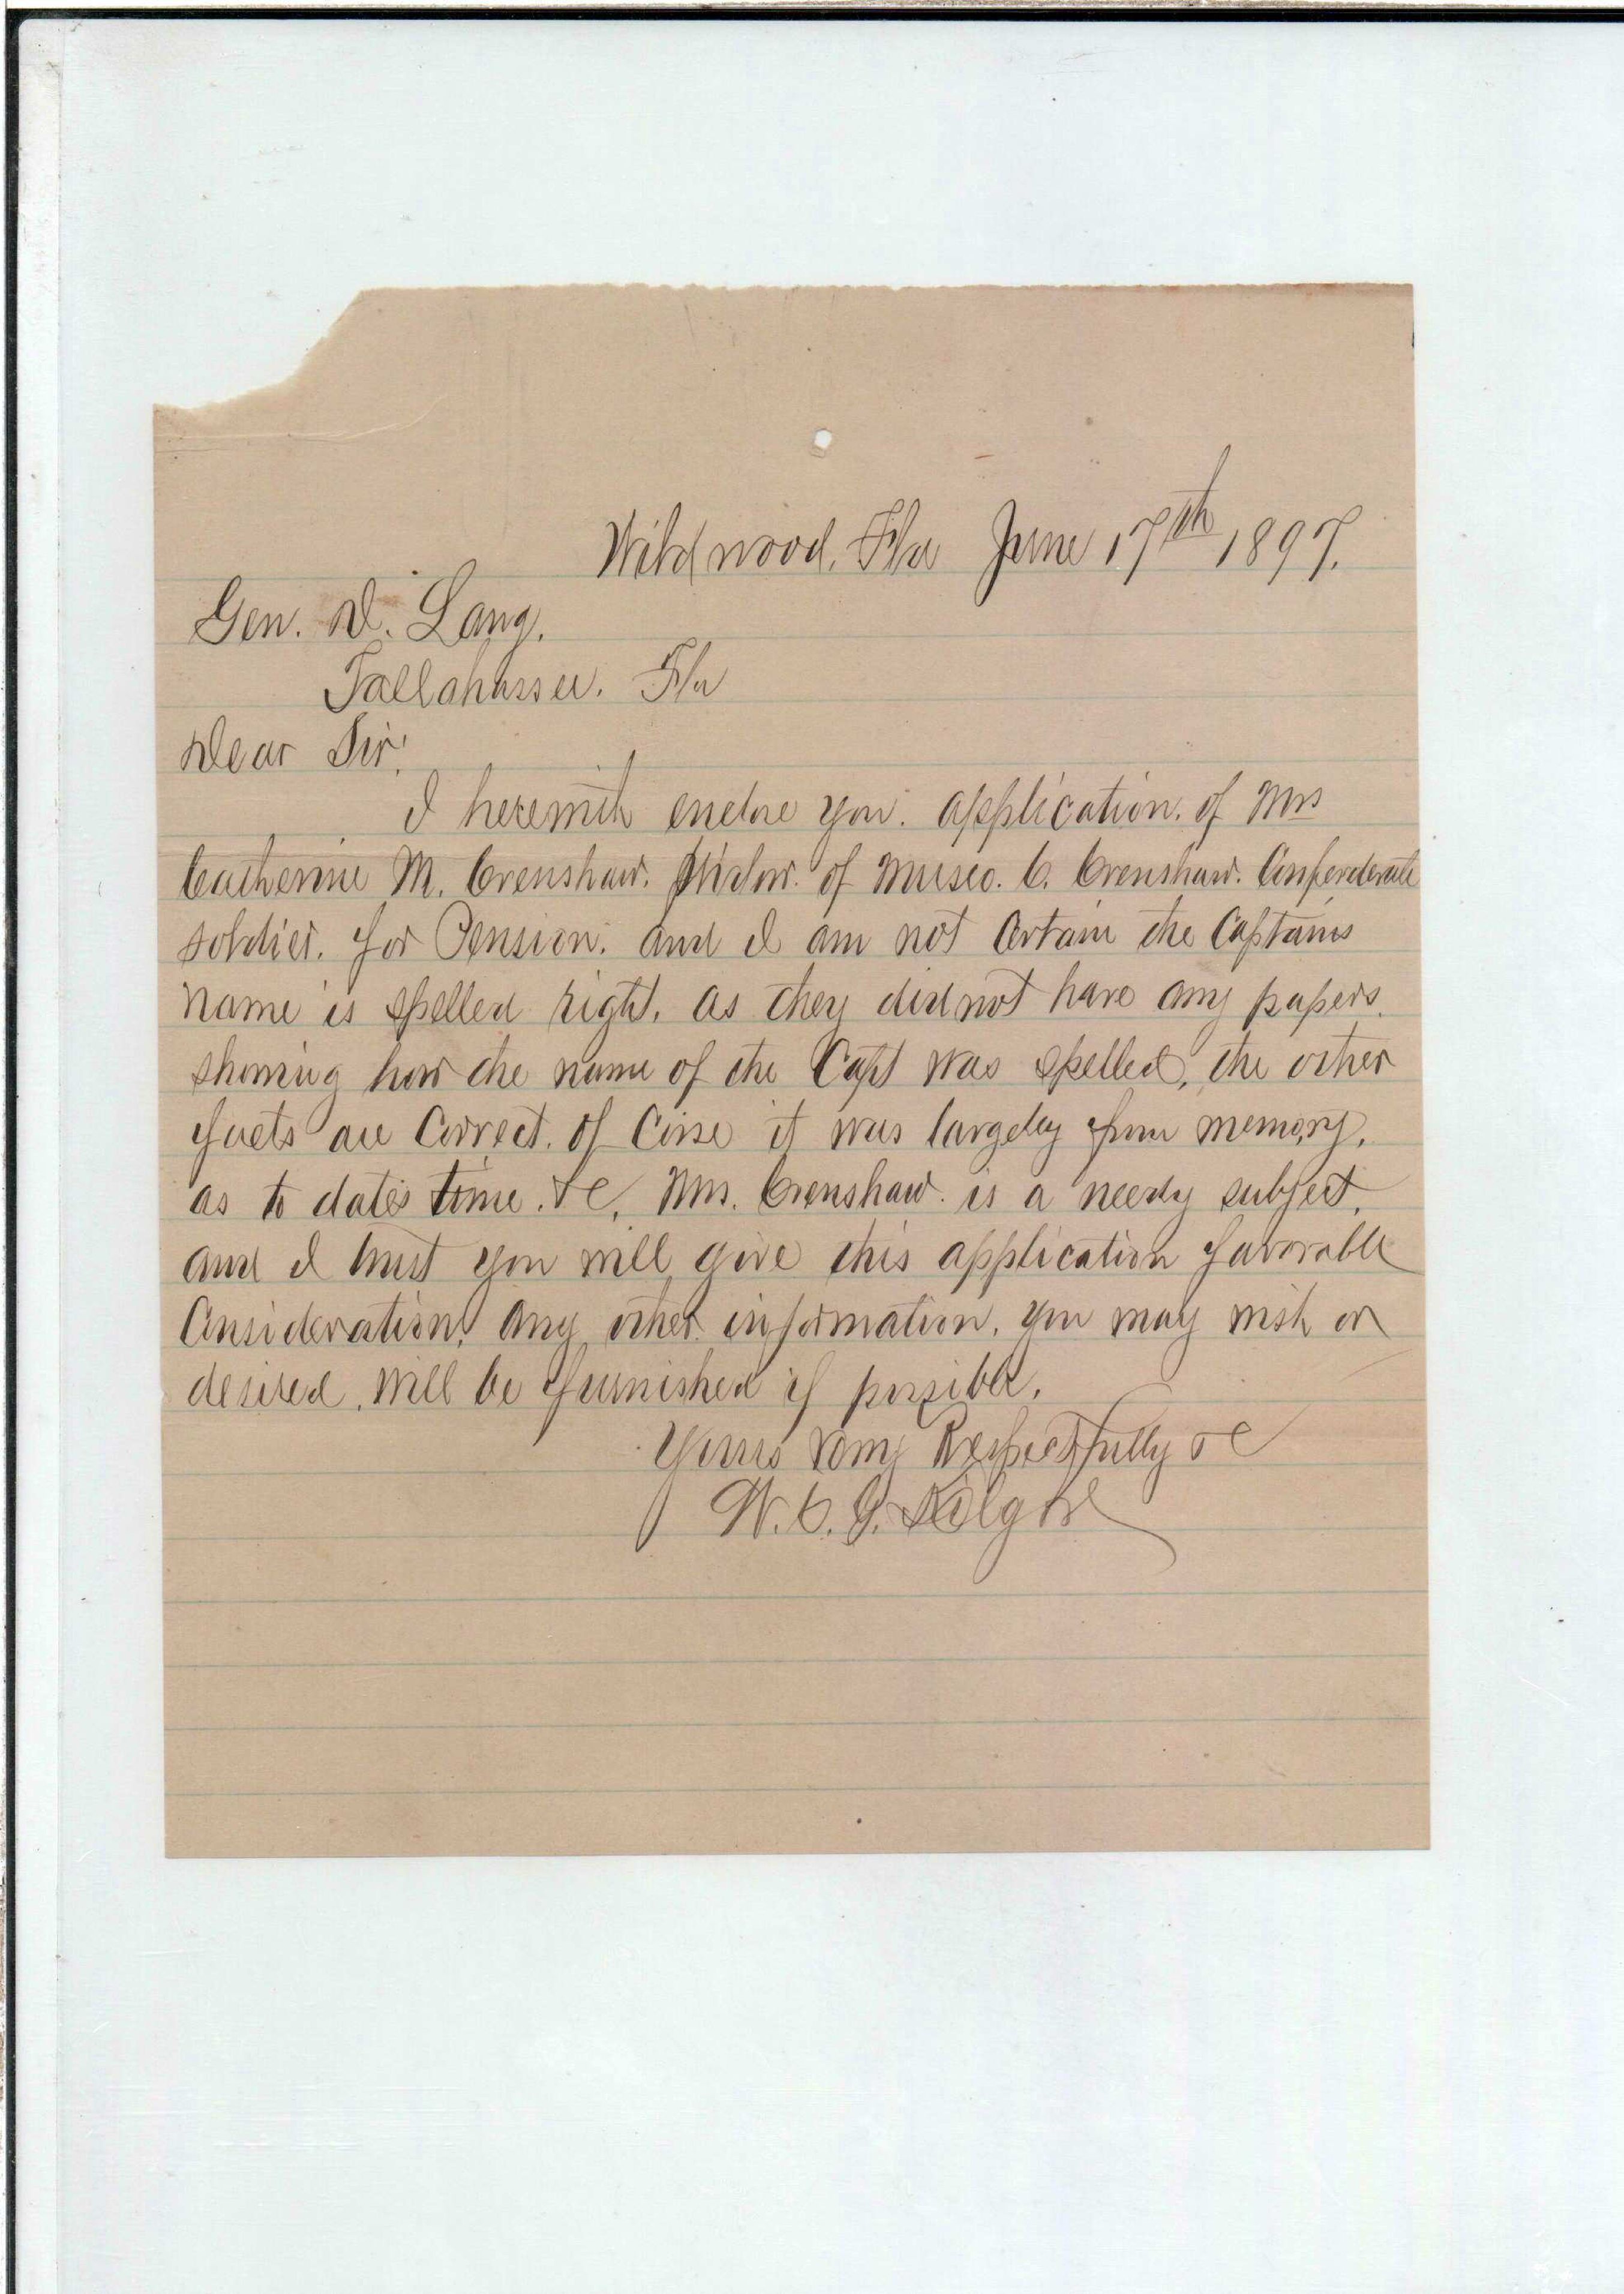 Wildwood, Fla June 17th 1897.
Gen. D. Lang.
Tallahassee. Fla
Dear Sir!
I herewith enclose you. application. of Mrs
Catherine M. Crenshaw. Widow. of C. Crenshaw. Confederate
soldier. for Pension. and I am not Certain the Captains
name is spelled right. as they did not have any papers.
showing how the name of the Capt was spelled, the other
facts are Correct. Of Corse it was largely from memory,
as to dates time. &c, Mrs. Crenshaw. is a needy subject,
and I trust you will give this application favorable
Consideration, Any other information. you may wish or
desired. will be furnished if possible.
Yours very Respectfully &c
W. C. J. Kilgore